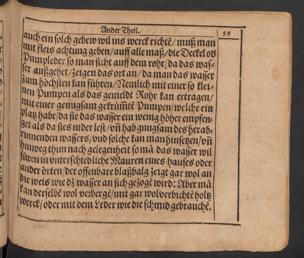 Ander Theil.
55
auch ein solch gebew wil ins werck richtē/ muß man
mit fleis achtung geben/ auff alle maß/ die Deckel od
Pumpleder so man sicht auff dem rohr/ da das was-
ser außgehet/ zeigen das ort an/ da man das wasser
zum höchsten kan führen/ Nemlich mit einer so klei-
nen Pumpen als das gemeldt Rohr kan ertragen/
mit einer genugsam gekrümtē Pumpen/ welche ein
platz habe/ da sie das wasser ein wenig höher empfen-
get als da sies nider lest/ vñ hab gnugsam des herab-
rinnenden wassers/ und solche kan man hinsetzen/ vñ
hinweg thun nach gelegenheit so mā das wasser wil
füren in unterschiedliche Mauren eines hauses oder
ander örten/ der offenbare blaßbalg zeigt gar wol an
die weis wie dz wasser an sich gezogē wird: Aber mā
kan denselbē wol verbergē/ mit gar wolverbichtē holtz
werck/ oder mit dem Leder wie die schmid gebrauchē.